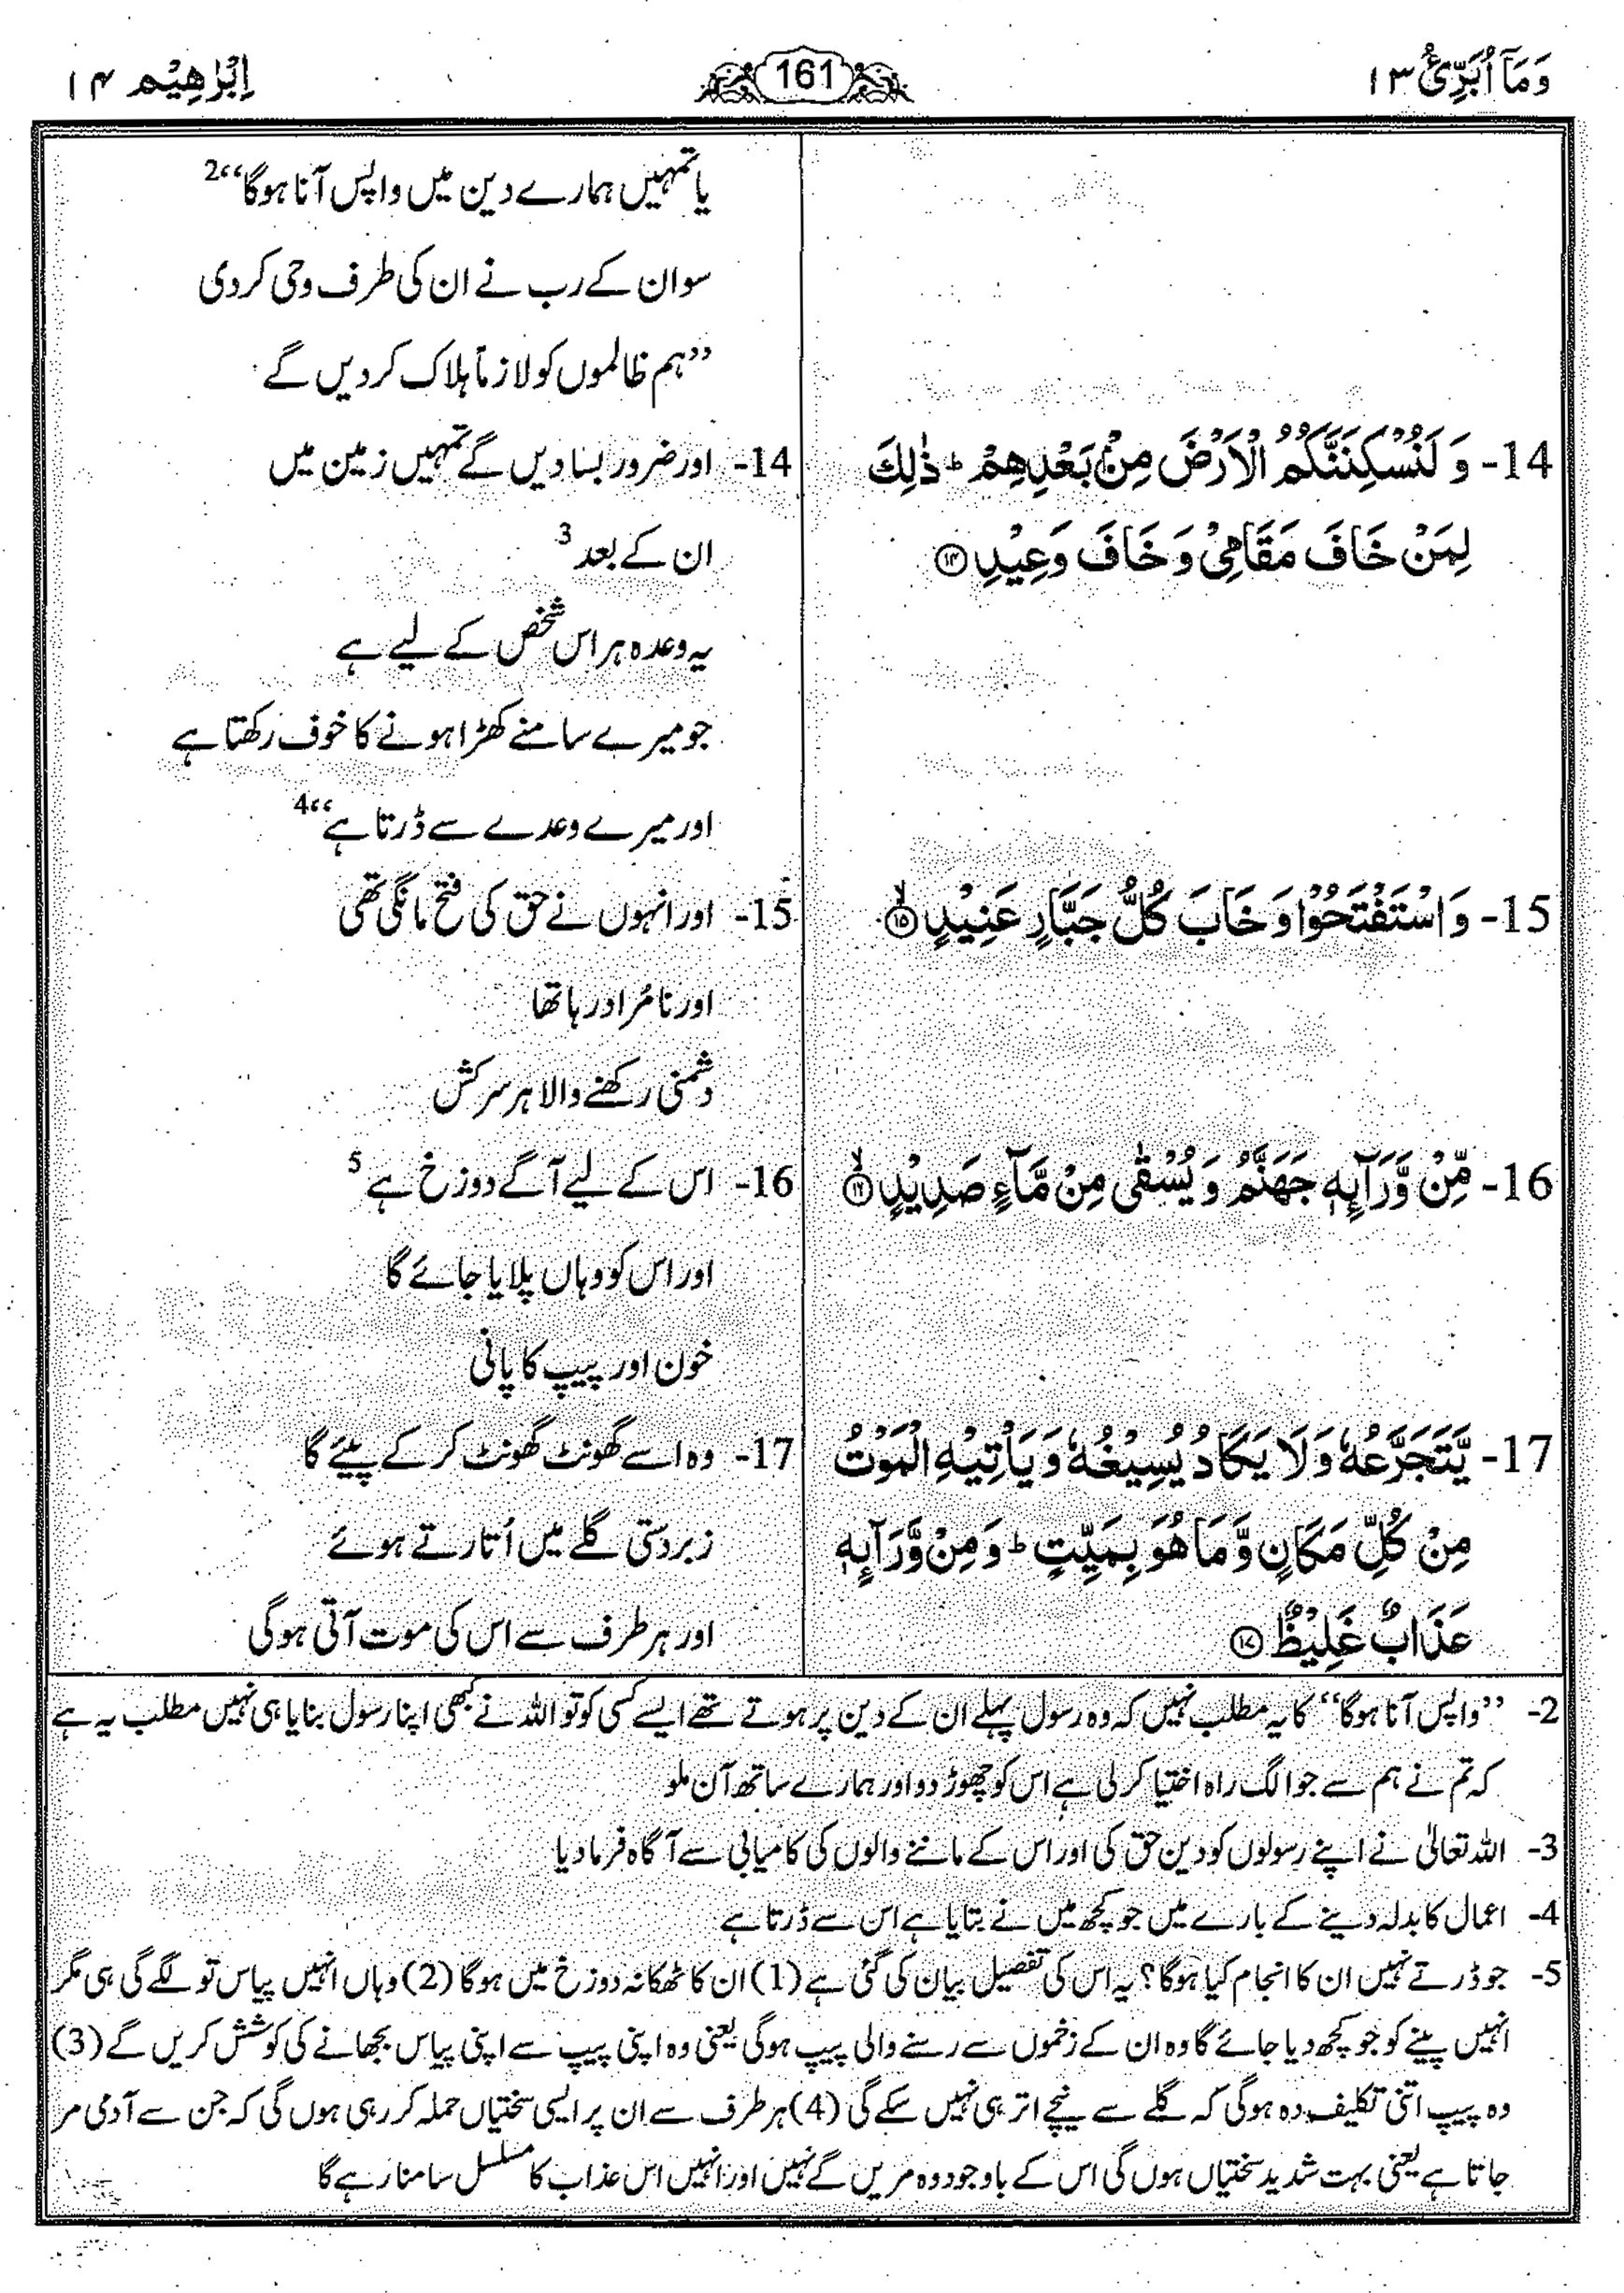 وَمَآ اُبَرِّئُ ۱۳
161
اِبْرٰهِیْم ۱۴
14- وَ لَنُسْكِنَنَّكُمُ الْاَرْضَ مِنْۢ بَعْدِهِمْ ؕ ذٰلِكَ
لِمَنْ خَافَ مَقَامِیْ وَ خَافَ وَعِیْدِ ۝۱۴
15- وَ اسْتَفْتَحُوْا وَ خَابَ كُلُّ جَبَّارٍ عَنِیْدٍ ۝۱۵ۙ
16- مِّنْ وَّرَآىِٕهٖ جَهَنَّمُ وَ یُسْقٰى مِنْ مَّآءٍ صَدِیْدٍ ۝۱۶ۙ
17- یَّتَجَرَّعُهٗ وَ لَا یَكَادُ یُسِیْغُهٗ وَ یَاْتِیْهِ الْمَوْتُ
مِنْ كُلِّ مَكَانٍ وَّ مَا هُوَ بِمَیِّتٍ ؕ وَ مِنْ وَّرَآىِٕهٖ
عَذَابٌ غَلِیْظٌ ۝۱۷
یا تمہیں ہمارے دین میں واپس آنا ہوگا“2
سو ان کے رب نے ان کی طرف وحی کر دی
”ہم ظالموں کو لازماً ہلاک کر دیں گے
14- اور ضرور بسا دیں گے تمہیں زمین میں
ان کے بعد 3
یہ وعدہ ہر اس شخص کے لیے ہے
جو میرے سامنے کھڑا ہونے کا خوف رکھتا ہے
اور میرے وعدے سے ڈرتا ہے“4
15- اور انہوں نے حق کی فتح مانگی تھی
اور نامُراد رہا تھا
دشمنی رکھنے والا ہر سرکش
16- اس کے لیے آگے دوزخ ہے 5
اور اس کو وہاں پلایا جائے گا
خون اور پیپ کا پانی
17- وہ اسے گھونٹ گھونٹ کر کے پیئے گا
زبردستی گلے میں اُتارتے ہوئے
اور ہر طرف سے اس کی موت آتی ہوگی
2- ”واپس آنا ہوگا“ کا یہ مطلب نہیں کہ وہ رسول پہلے ان کے دین پر ہوتے تھے ایسے کسی کو تو اللہ نے کبھی اپنا رسول بنایا ہی نہیں مطلب یہ ہے
کہ تم نے ہم سے جو الگ راہ اختیا کر لی ہے اس کو چھوڑ دو اور ہمارے ساتھ آن ملو
3- اللہ تعالیٰ نے اپنے رسولوں کو دین حق کی اور اس کے ماننے والوں کی کامیابی سے آگاہ فرما دیا
4- اعمال کا بدلہ دینے کے بارے میں جو کچھ میں نے بتایا ہے اس سے ڈرتا ہے
5- جو ڈرتے نہیں ان کا انجام کیا ہوگا؟ یہ اس کی تفصیل بیان کی گئی ہے (1) ان کا ٹھکانہ دوزخ میں ہوگا (2) وہاں انہیں پیاس تو لگے گی ہی مگر
انہیں پینے کو جو کچھ دیا جائے گا وہ ان کے زخموں سے رسنے والی پیپ ہوگی یعنی وہ اپنی پیپ سے اپنی پیاس بجھانے کی کوشش کریں گے (3)
وہ پیپ اتنی تکلیف دہ ہوگی کہ گلے سے نیچے اتر ہی نہیں سکے گی (4) ہر طرف سے ان پر ایسی سختیاں حملہ کر رہی ہوں گی کہ جن سے آدمی مر
جاتا ہے یعنی بہت شدید سختیاں ہوں گی اس کے باوجود وہ مریں گے نہیں اور انہیں اس عذاب کا مسلسل سامنا رہے گا